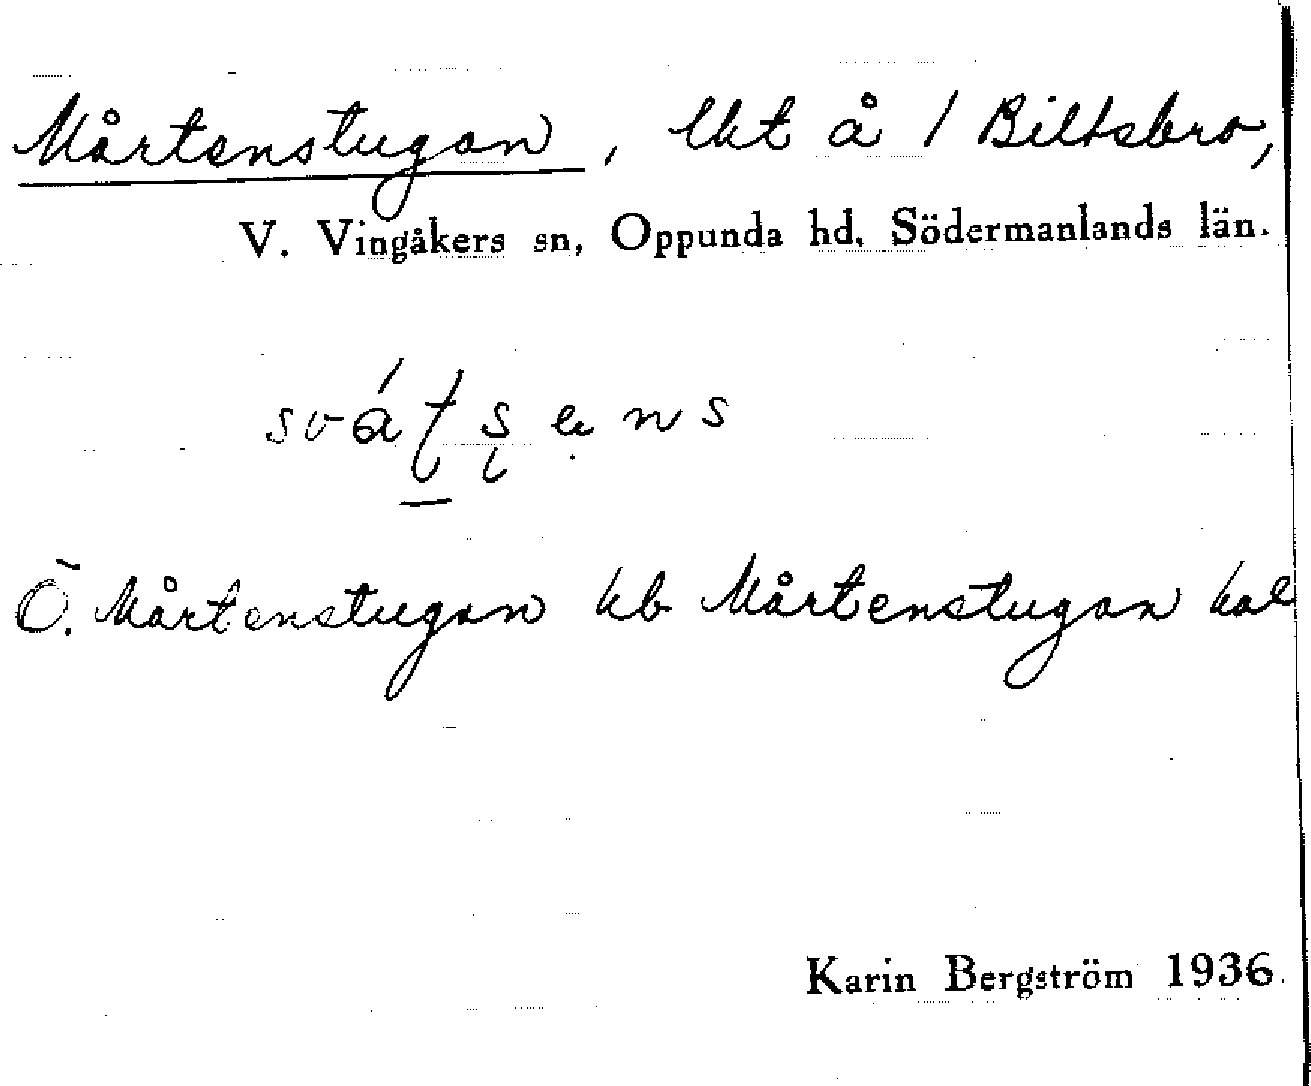 Mårtenstugan, lht å 1 Biltsbro,
V. Vingåkers sn, Oppunda hd, Södermanlands län.
Ö. Mårtenstugan kb Mårtenstugan kal
Karin Bergström 1936